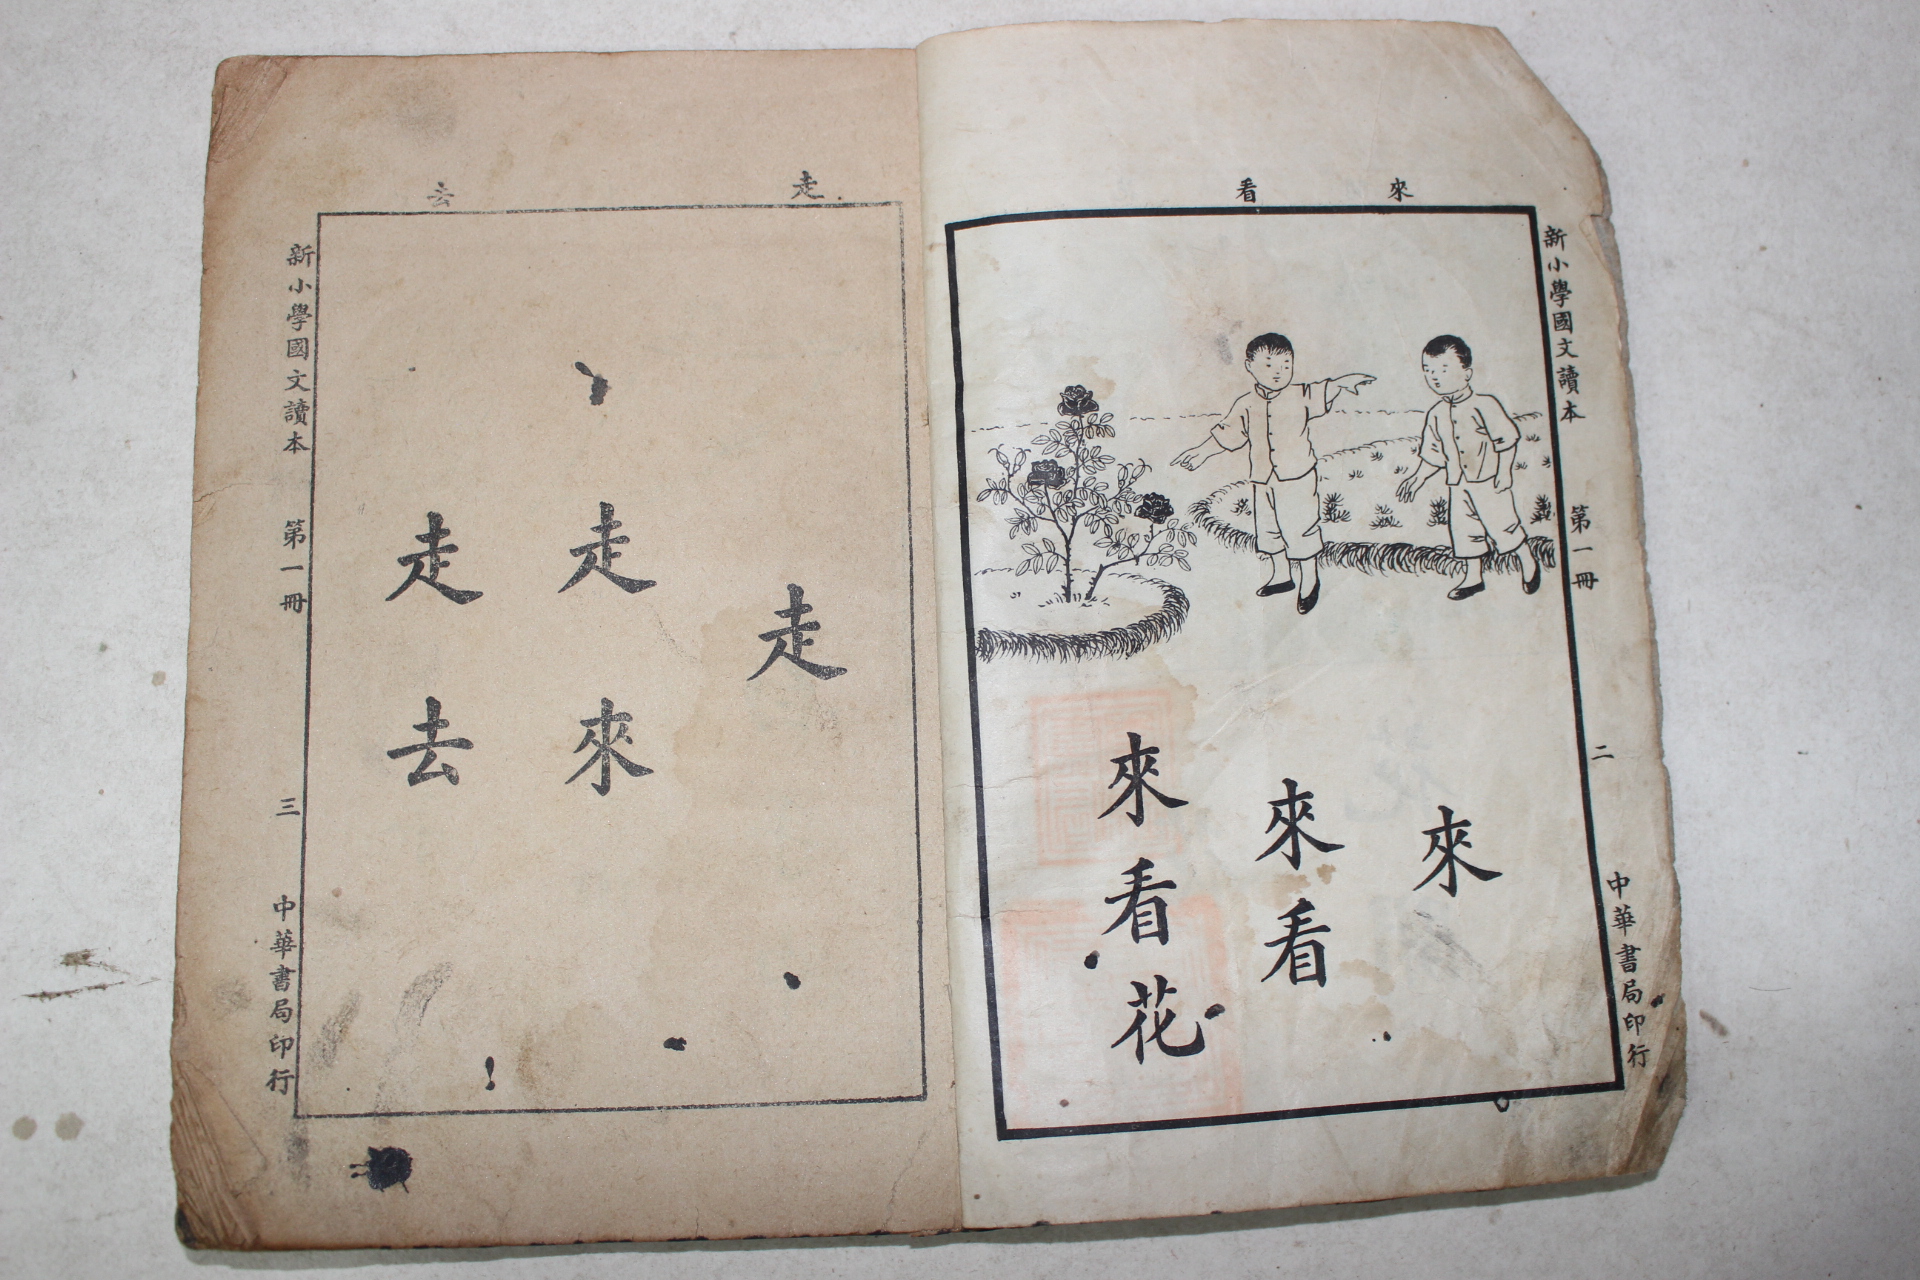 來 看
新小學國文讀本 第一冊 二 中華書局印行
來
來看
來看花
走 去
走
走來
走去
新小學國文讀本 第一冊 三 中華書局印行